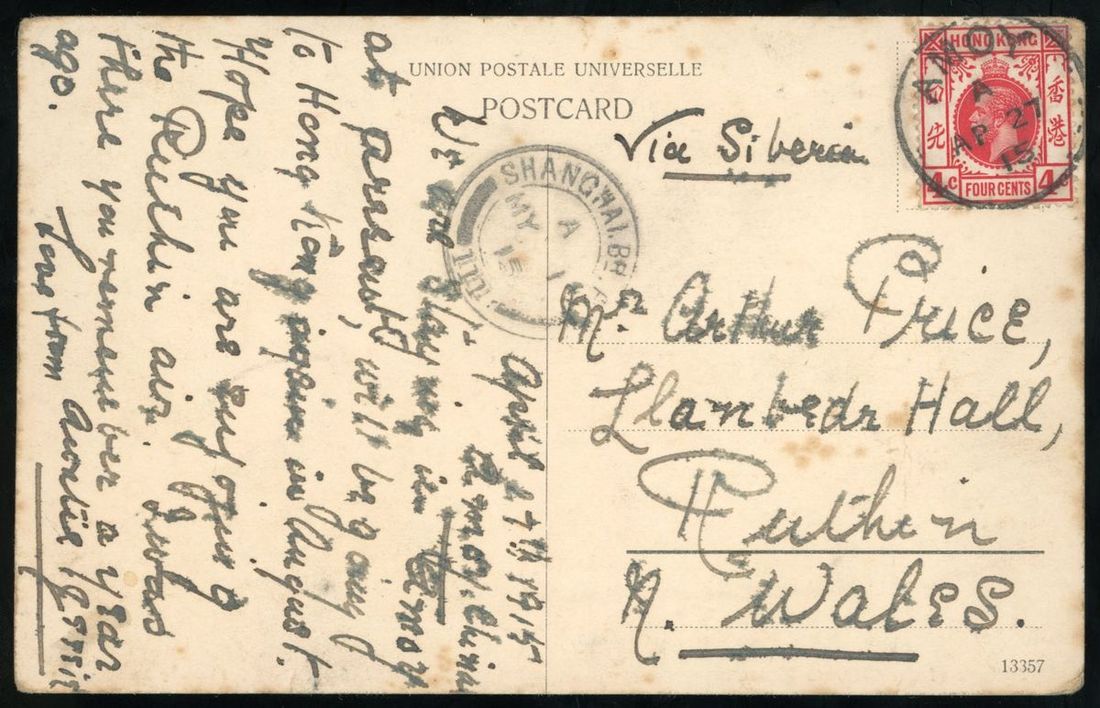 UNION POSTALE UNIVERSELLE
POSTCARD
Via Siberia.
HONG KONG
香港
4c FOUR CENTS 4
AMOY
A
AP 27
15
SHANGHAI BR. P.O.
A
MY 1
15
Mr Arthur Price,
Llanbedr Hall,
Ruthin
N. Wales.
13357
April 27th 1915
Amoy, China
We are staying in Amoy
at present, will be going
to Hong Kong again in August.
Hope you are enjoying
the Ruthin air.
there you remember a year
ago.
Love from Auntie